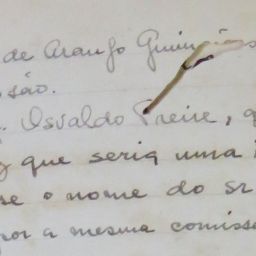 de Araujo Guimarães
são.
. Osvaldo Freire, q
que seria uma i
se o nome do sr
por a mesma comissã